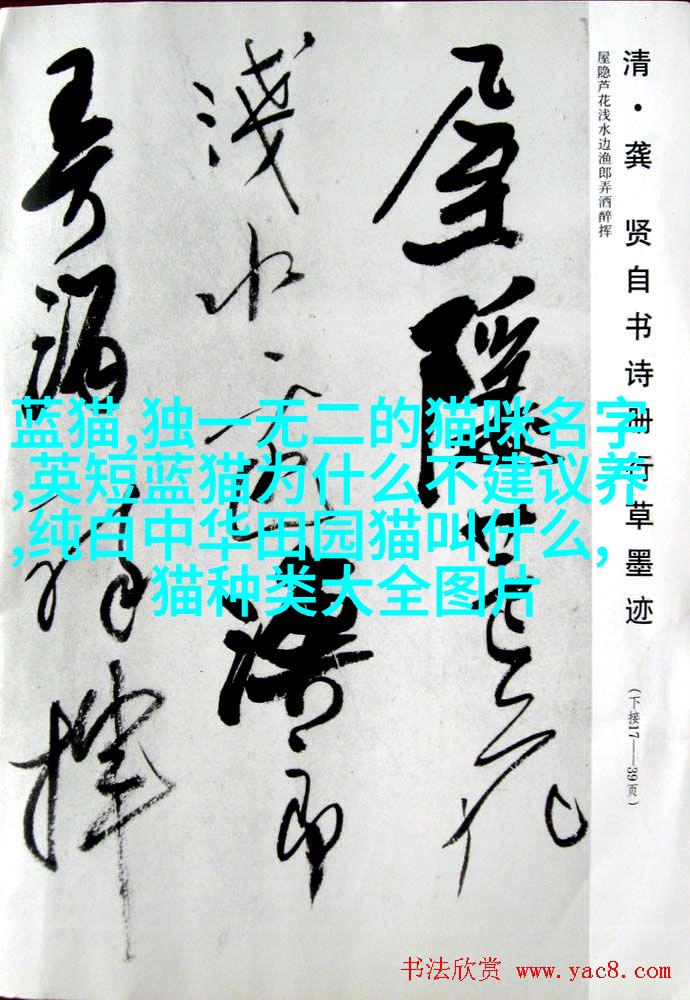 清·龚 贤自书诗册行草墨迹
屋隐芦花浅水边渔郎弄洒醉挥
(下接17——39页)
屋隱芦花
淺水边漁郎
弄洒醉揮
蓝猫,独一无二的猫咪名字
,英短蓝猫为什么不建议养
,纯白中华田园猫叫什么,
猫种类大全图片
书法欣赏 www.yac8.com